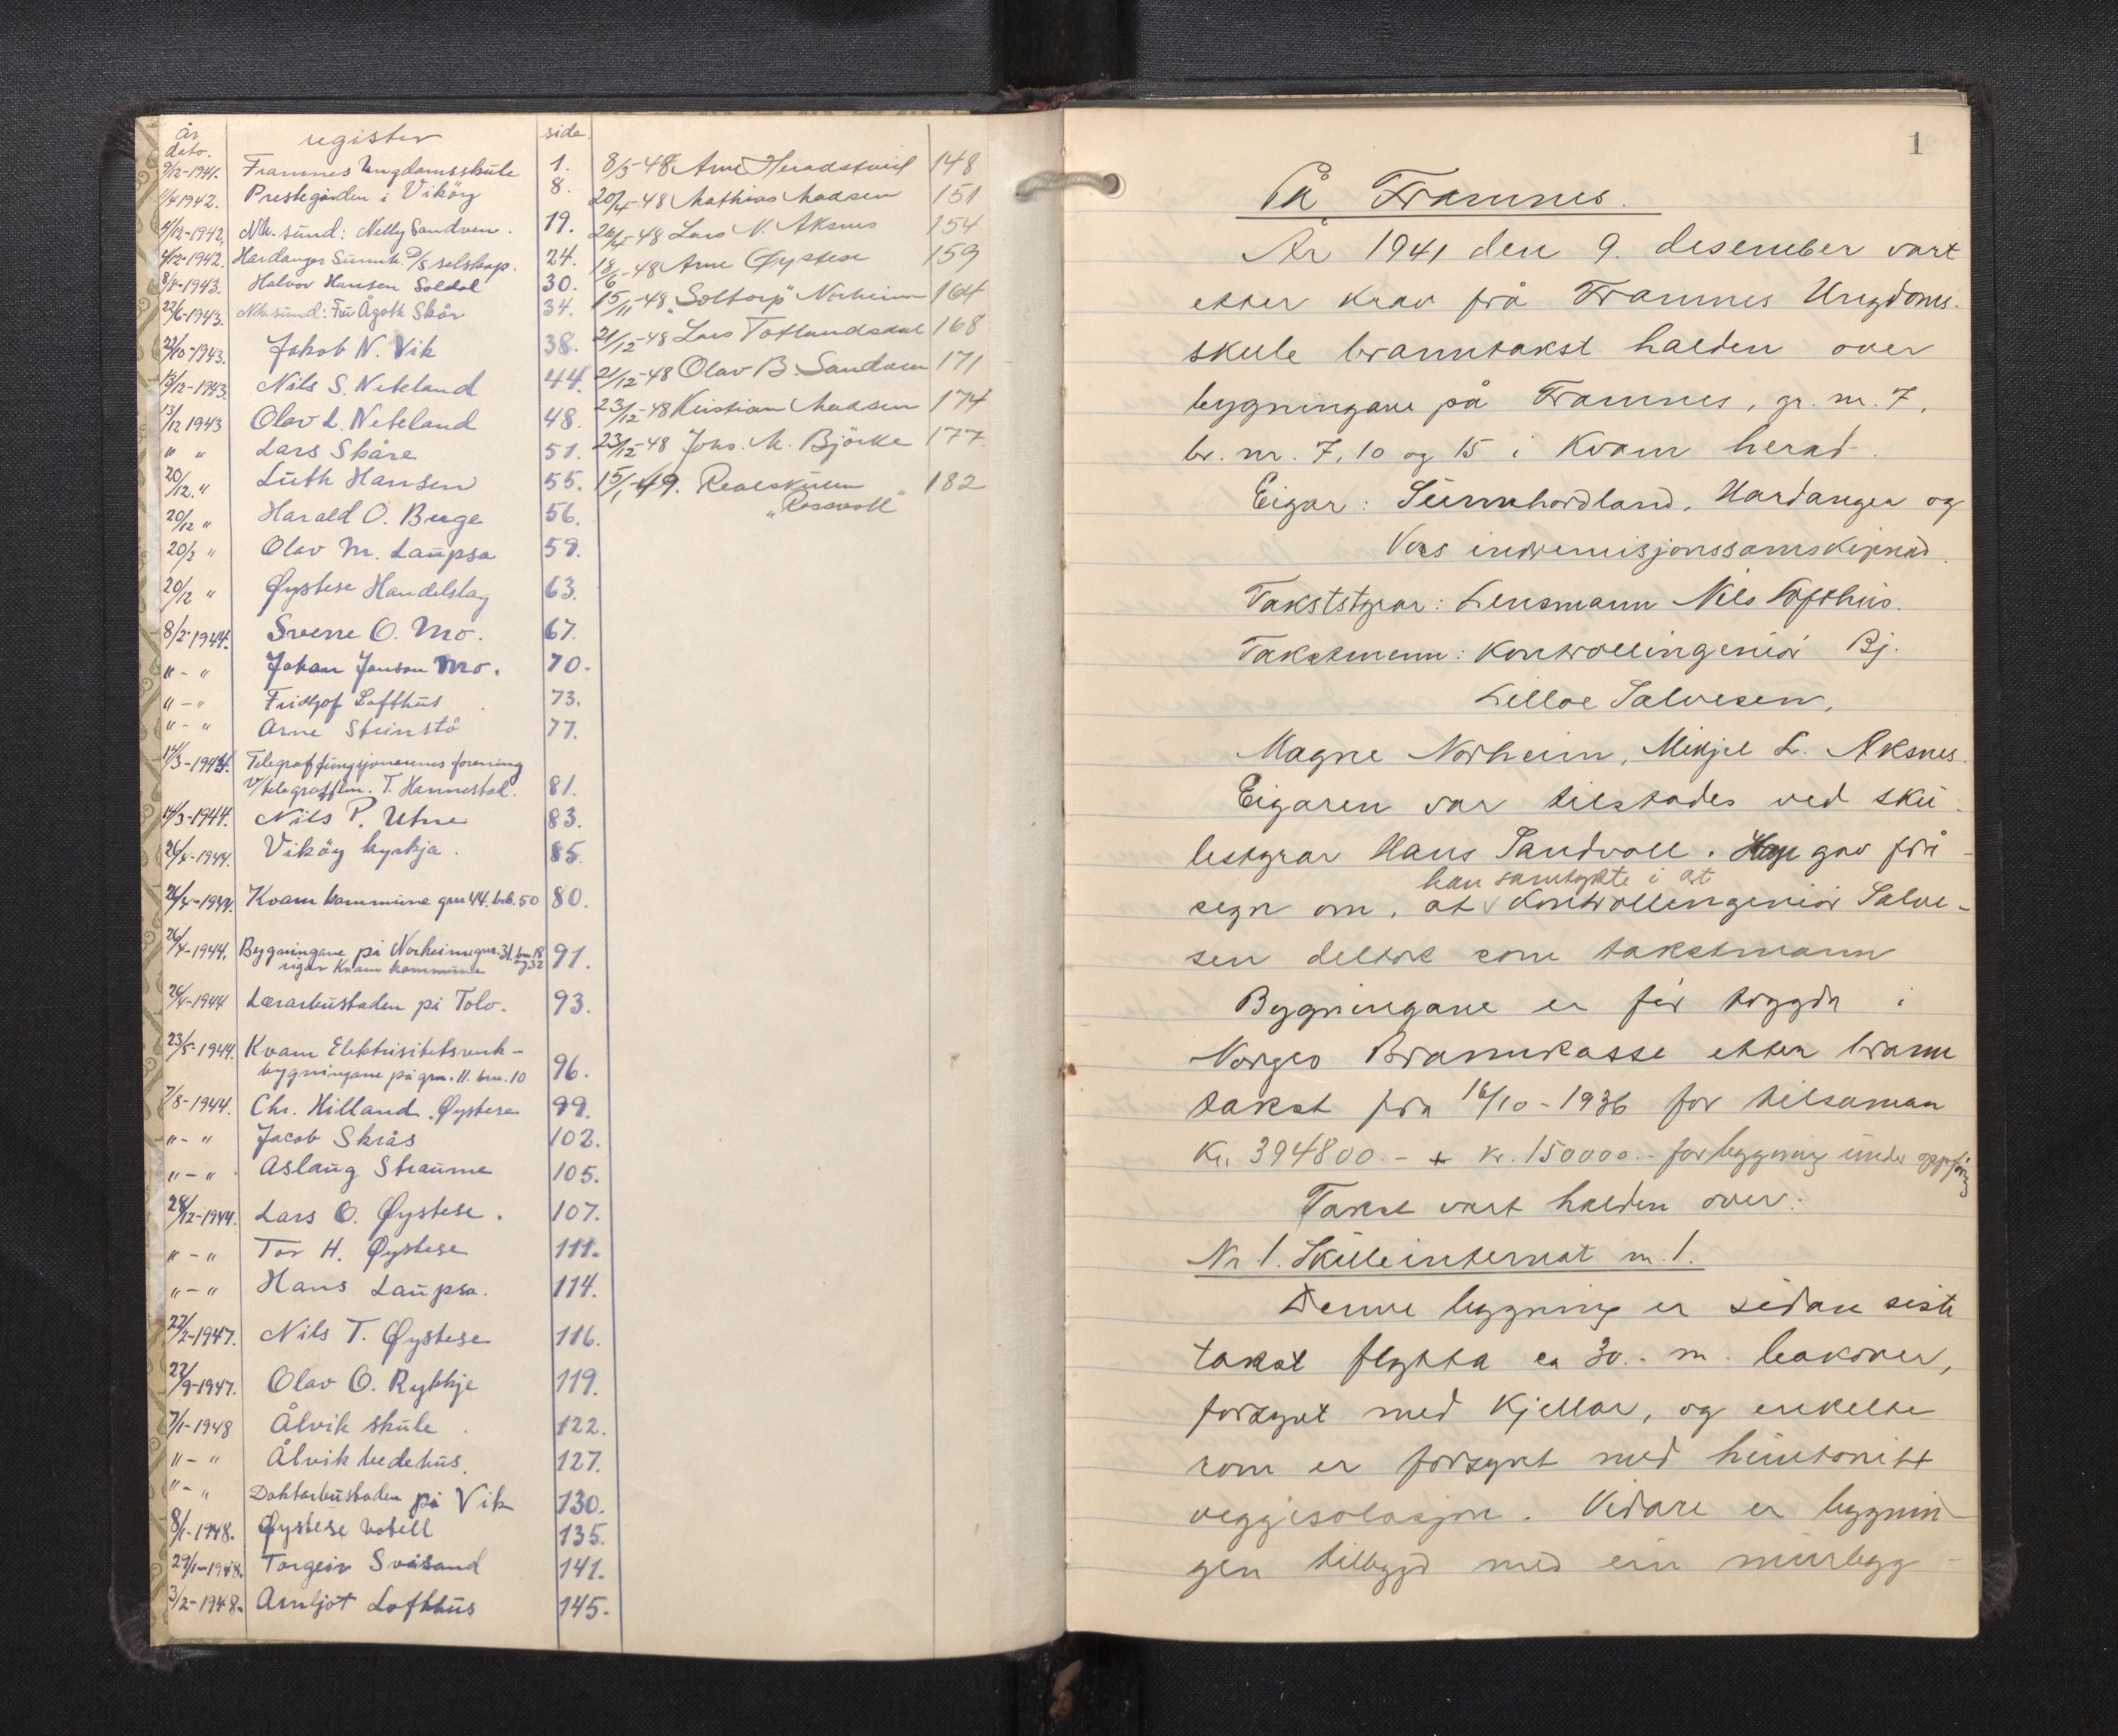 år
dato. register side.
9/12-1941. Framnes Ungdomsskule 1.
1/4 1942. Prestegården i Vikøy 8.
4/12-1942. Nh.sund: Nelly Sandven. 19.
4/12-1942. Hardanger Sunnh. D/S selskap. 24.
8/5-1943. Halvor Hansen Soldal 30.
22/6-1943. Nh.sund: Frü Ågoth Skår 34.
22/10-1943. Jakob N. Vik 38.
13/12-1943. Nils S. Neteland 44.
13/12 1943 Olav L. Neteland 48.
" " Lars Skåre 51.
20/12. " Lüth Hansen 55.
20/12 " Harald O. Berge 56.
20/2 " Olav M. Laupsa 59.
20/12 " Øystese Handelslag 63.
8/2-1944. Sverre O. Mo. 67.
" - " Johan Jonson Mo. 70.
" - " Fridtjof Lofthus 73.
" - " Arne Steinstö 77.
14/3-1944. Telegraffungsjonærenes forening
v/telegraffbm. T. Hannestad. 81.
14/3-1944. Nils P. Utne 83.
26/4-1944. Viköy kyrkja. 85.
26/4-1944. Kvam kommune gnr 44. b.b. 50 80.
26/4-1944. Bygningane på Norheim gnr. 31. bnr 18
og 32
eigar Kvam kommune 91.
26/4-1944 Lærarbustaden på Tolo. 93.
23/5-1944. Kvam Elektrisitetsverk -
bygningane på gnr. 11. bnr. 10 96.
7/8-1944. Chr. Hilland. Øystese 99.
" - " Jacob Skrås 102.
" - " Aslaug Straume 105.
28/12-1944. Lars O. Øystese. 107.
" - " Tor H. Øystese 111.
" - " Hans Laupsa. 114.
22/2-1947. Nils T. Øystese 116.
22/9-1947. Olav O. Rykkje 119.
7/1-1948 Ålvik skule. 122.
" - " Ålvik bedehus. 127.
" - " Doktorbustaden på Vik 130.
8/1-1948. Øystese hotell 135.
29/1-1948. Torgeir Svåsand 141.
3/2-1948. Arnljot Lofthus 145.
8/3-48 Arne Heradstveit 148
20/4-48 Mathias Madsen 151
26/4-48 Lars N. Aksnes 154
18/6-48 Arne Øystese 159
15/11-48 "Soltorp" Norheim 164
21/12-48 Lars Toflandsdal 168
21/12-48 Olav B. Sandven 171
23/12-48 Kristian Madsen 174
23/12-48 Johs. M. Björke 177.
15/1-49. Realskulen 182
"Rossvoll"
1
På Framnes.
År 1941 den 9. desember vart
etter krav frå Framnes Ungdoms-
skule branntakst halden over
bygningane på Framnes, gr. nr. 7,
br. nr. 7, 10 og 15 i Kvam herad.
Eigar: Sunnhordland, Hardanger og
Voss indremisjonssamskipnad.
Takststyrar: Lensmann Nils Lofthus.
Takstmenn: Kontrollingeniör Bj.
Lilloe Salvesen,
Magne Norheim, Mikjel L. Aksnes.
Eigaren var tilstades ved sku-
lestyrar Hans Sandvoll. Han gav frå-
han samtykte i at
segn om, at kontrollingeniör Salve-
sen deltok som takstmann
Bygningane er för trygda i
Norges Brannkasse etter brann
takst frå 16/10-1936 for tilsaman
Kr. 394800.- + kr. 150000.- for bygning under oppföring
Takst vart halden over:
Nr 1. Skuleinternat nr. 1.
Denne bygning er sidan siste
takst flytta ca 30.- m. bakover,
forsynt med kjellar, og enkelte
rom er forsynt med huntonitt
veggisolasjon. Vidare er bygnin-
gen tilbygd med ein murbygg-